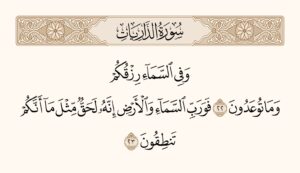 سُورَةُ الذَّارِيَاتِ
وَفِي ٱلسَّمَآءِ رِزْقُكُمْ
وَمَا تُوعَدُونَ ٢٢ فَوَرَبِّ ٱلسَّمَآءِ وَٱلْأَرْضِ إِنَّهُۥ لَحَقٌّ مِّثْلَ مَآ أَنَّكُمْ
تَنطِقُونَ ٢٣